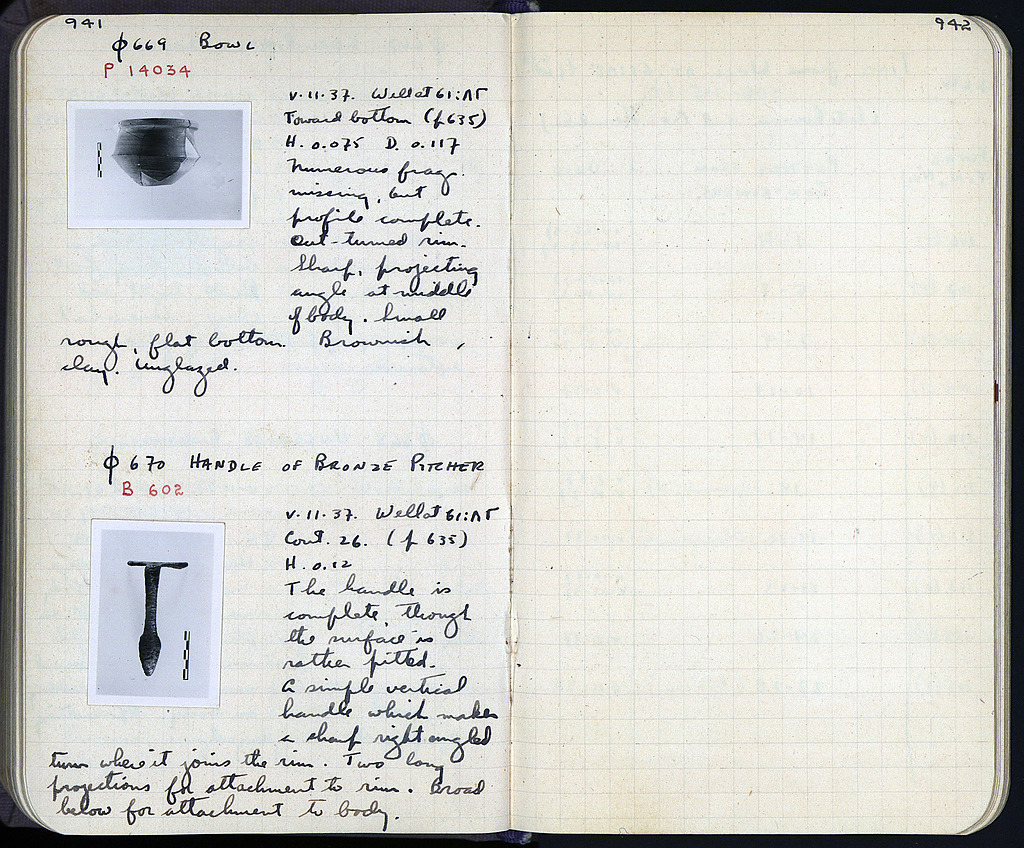 941
942
φ669 Bowl
P 14034
V.11.37. Well at 61:ΛΓ
Toward bottom (p 635)
H. 0.075 D. 0.117
Numerous frag.
missing, but
profile complete.
Out-turned rim.
Sharp, projecting
angle at middle
of body. Small
rough, flat bottom. Brownish
clay. Unglazed.
φ670 HANDLE OF BRONZE PITCHER
B 602
V.11.37. Well at 61:ΛΓ
Cont. 26. (p 635)
H. 0.12
The handle is
complete, though
the surface is
rather pitted.
A simple vertical
handle which makes
a sharp right angled
turn where it joins the rim. Two long
projections for attachment to rim. Broad
below for attachment to body.